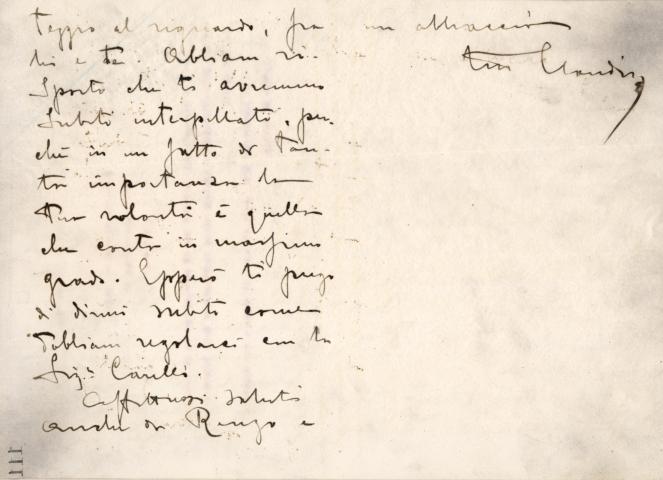 teggio al riguardo, fra
lui e te. Abbiam ri-
sposto che ti avremmo
subito interpellato, per-
chè in un fatto di tan-
ta importanza la
tua volontà è quella
che conta in massimo
grado. Epperò ti prego
di dirmi subito come
dobbiam regolarci con la
Sig.ª Carelli.
Affettuosi saluti
anche da Renzo e
un abbraccio
tuo Claudio
111